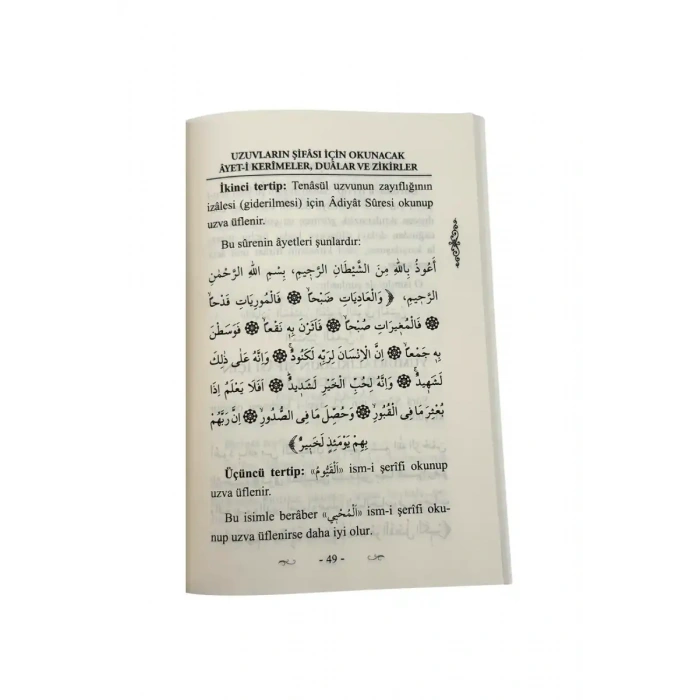 UZUVLARIN ŞİFÂSI İÇİN OKUNACAK
ÂYET-İ KERÎMELER, DUÂLAR VE ZİKİRLER
İkinci tertip: Tenâsül uzvunun zayıflığının
izâlesi (giderilmesi) için Âdiyât Sûresi okunup
uzva üflenir.
Bu sûrenin âyetleri şunlardır:
اَعُوذُ بِاللّٰهِ مِنَ الشَّيْطَانِ الرَّجِيمِ، بِسْمِ اللّٰهِ الرَّحْمٰنِ
الرَّحِيمِ، ﴿ وَالْعَادِيَاتِ ضَبْحاًۙ ۞ فَالْمُورِيَاتِ قَدْحاًۙ
۞ فَالْمُغِيرَاتِ صُبْحاًۙ ۞ فَاَثَرْنَ بِهِ نَقْعاًۙ ۞ فَوَسَطْنَ
بِهِ جَمْعاًۙ ۞ اِنَّ الْاِنْسَانَ لِرَبِّهِ لَكَنُودٌۚ ۞ وَاِنَّهُ عَلٰى ذٰلِكَ
لَشَهِيدٌۚ ۞ وَاِنَّهُ لِحُبِّ الْخَيْرِ لَشَدِيدٌۜ ۞ اَفَلَا يَعْلَمُ اِذَا
بُعْثِرَ مَا فِي الْقُبُورِۙ ۞ وَحُصِّلَ مَا فِي الصُّدُورِۙ ۞ اِنَّ رَبَّهُمْ
بِهِمْ يَوْمَئِذٍ لَخَبِيرٌ ﴾
Üçüncü tertip: «اَلْقَيُّومُ» ism-i şerîfi okunup
uzva üflenir.
Bu isimle berâber «اَلْمُحْيِي» ism-i şerîfi oku-
nup uzva üflenirse daha iyi olur.
- 49 -